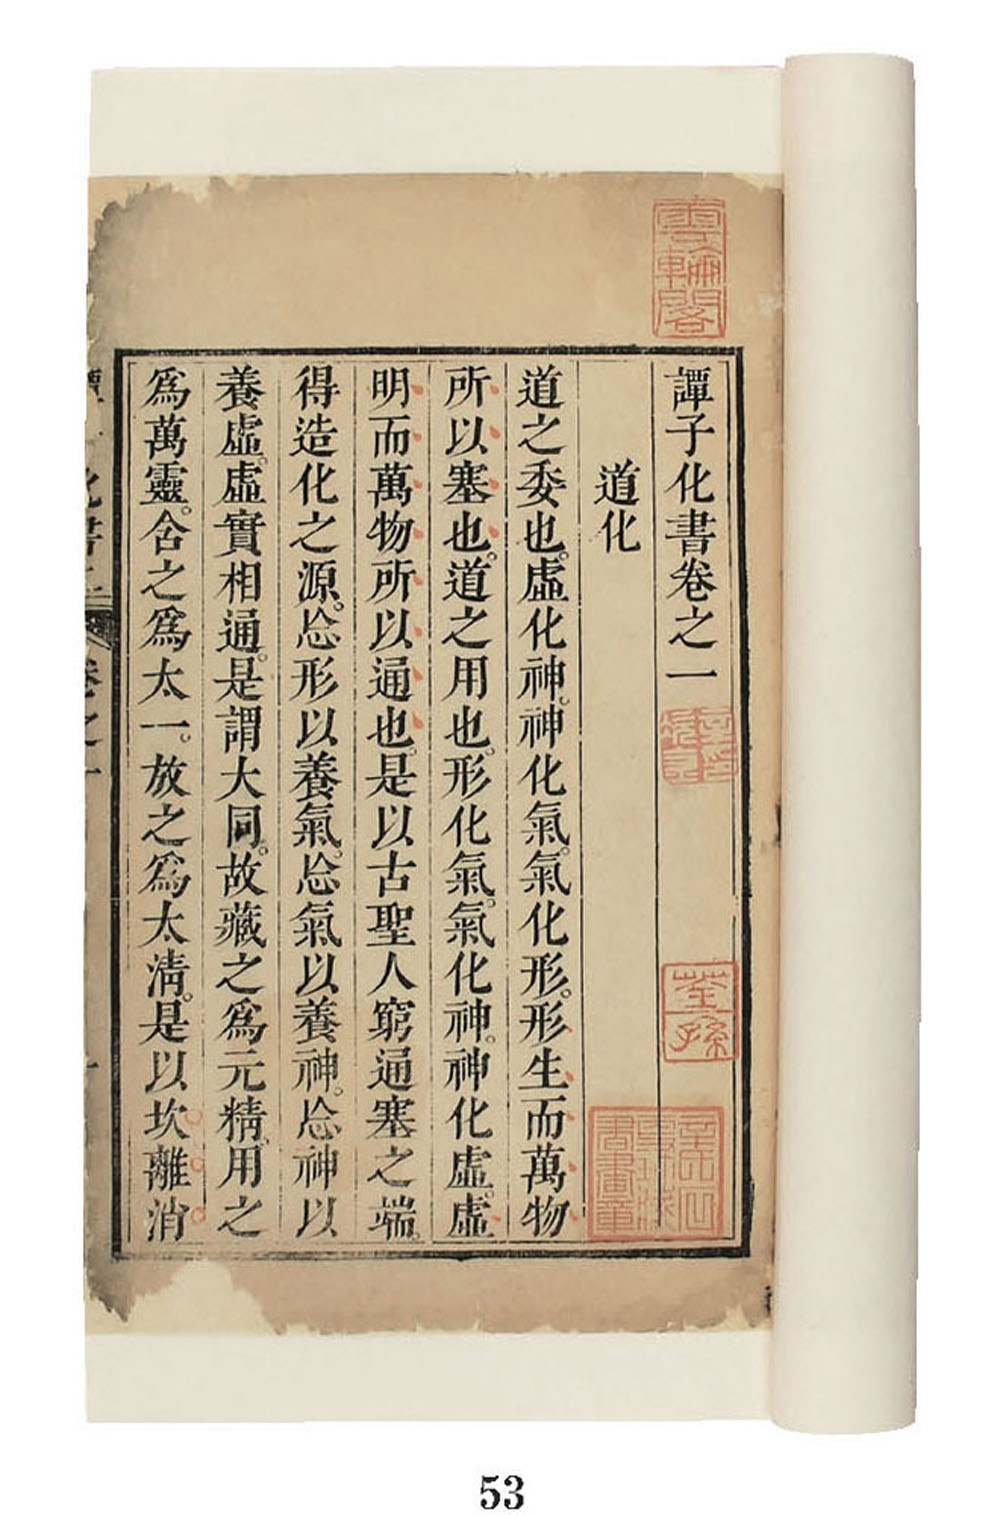 譚子化書卷之一
道化
道之委也。虛化神。神化氣。氣化形。形生而萬物
所以塞也。道之用也。形化氣。氣化神。神化虛。虛
明而萬物所以通也。是以古聖人窮通塞之端。
得造化之源。㤀形以養氣。㤀氣以養神。㤀神以
養虛。虛實相通。是謂大同。故藏之爲元精。用之
爲萬靈。含之爲太一。放之爲太淸。是以坎離消
雲輪閣
荃孫
卷之一
53